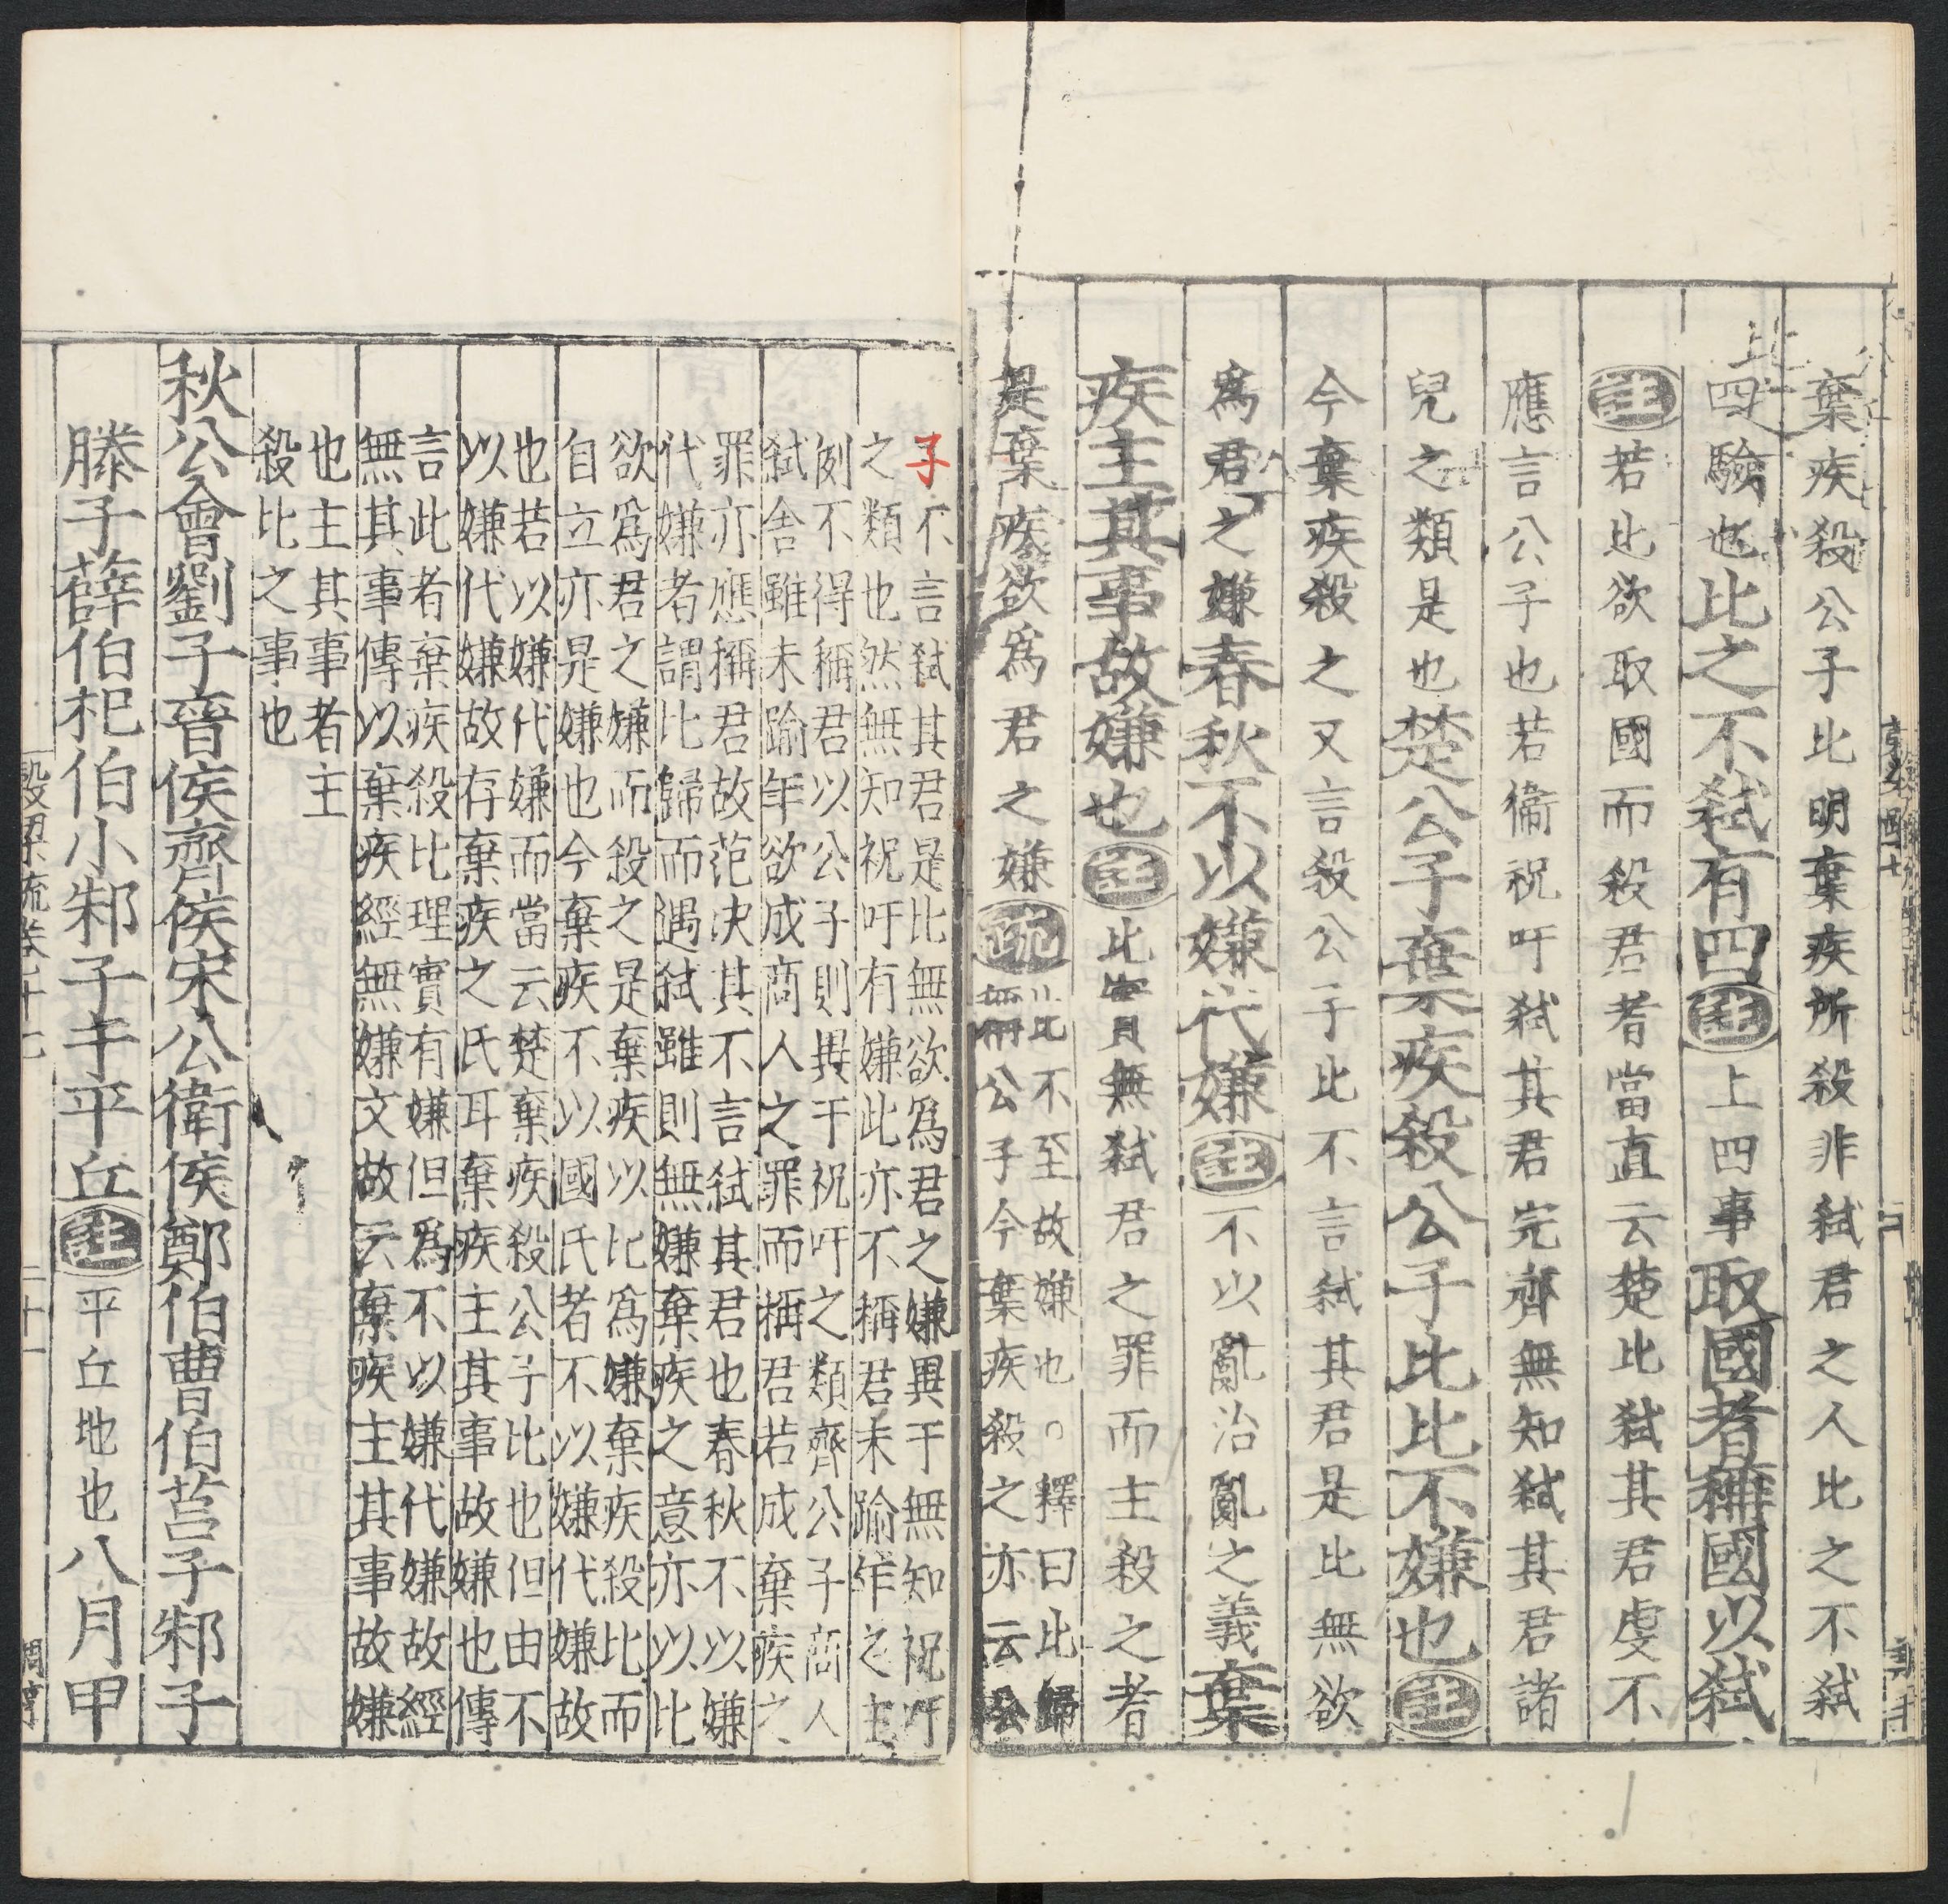 棄疾殺公子比明棄疾所殺非弑君之人比之不弑
四驗也比之不弑有四註上四事取國者稱國以弑
註若比欲取國而殺君者當直云楚比弑其君虔不
應言公子也若衞祝吁弑其君完齊無知弑其君諸
兒之類是也楚公子棄疾殺公子比比不嫌也註
今棄疾殺之又言殺公子比不言弑其君是比無欲
爲君之嫌春秋不以嫌代嫌註不以亂治亂之義棄
疾主其事故嫌也註比實無弑君之罪而主殺之者
是棄疾欲爲君之嫌疏
比不至故嫌也○釋曰比歸
稱公子今棄疾殺之亦云公
子不言弑其君是比無欲爲君之嫌異于無知祝吁
之類也然無知祝吁有嫌此亦不稱君未踰年之主
例不得稱君以公子則異于祝吁之類齊公子商人
弑舍雖未踰年欲成商人之罪而稱君若成棄疾之
罪亦應稱君故范决其不言弑其君也春秋不以嫌
代嫌者謂比歸而遇弑雖則無嫌棄疾之意亦以比
欲爲君之嫌而殺之是棄疾以比爲嫌棄疾殺比而
自立亦是嫌也今棄疾不以國氏者不以嫌代嫌故
也若以嫌代嫌而當云楚棄疾殺公子比也但由不
以嫌代嫌故存棄疾之氏耳棄疾主其事故嫌也傳
言此者棄疾殺比理實有嫌但爲不以嫌代嫌故經
無其事傳以棄疾經無嫌文故云棄疾主其事故嫌
也主其事者主
殺比之事也
秋公會劉子晉侯齊侯宋公衛侯鄭伯曹伯莒子邾子
滕子薛伯杞伯小邾子于平丘註平丘地也八月甲
穀梁疏卷十七
二十一